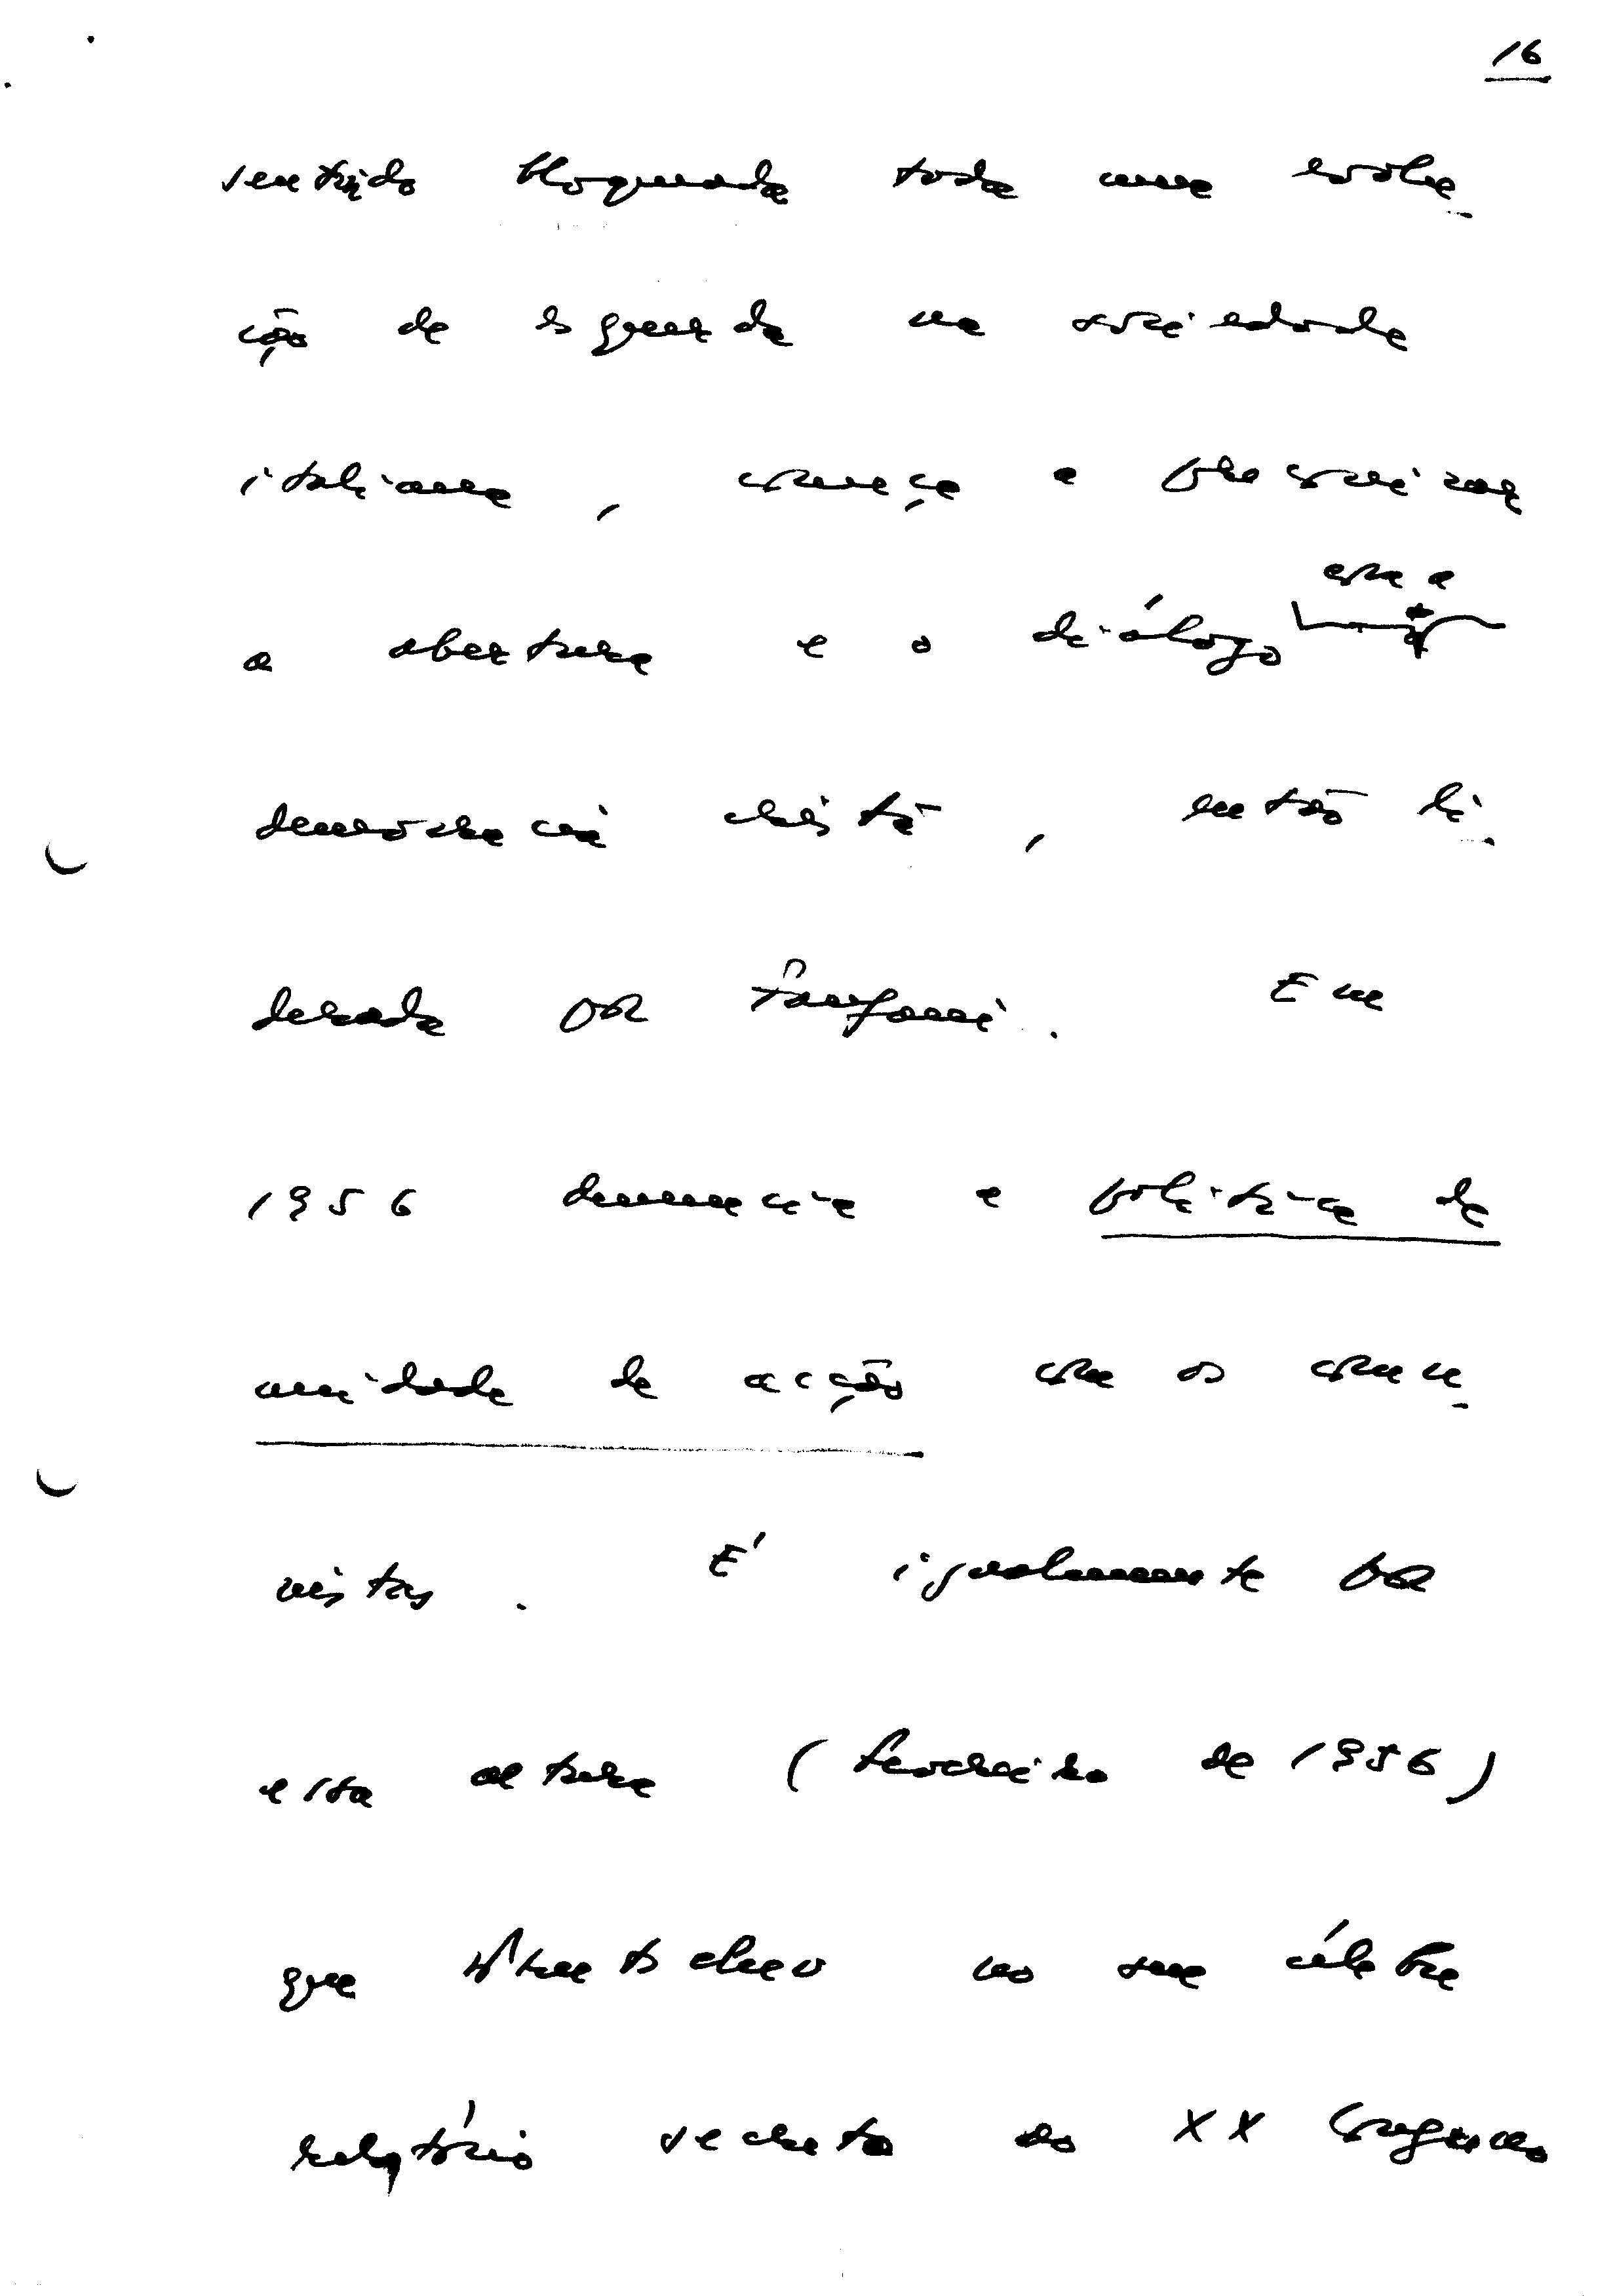 16
sentido bloqueada toda uma evolu-
ção de esquerda na sociedade
italiana, começa a preconizar
a abertura e o diálogo com a
democracia cristã, então li-
derada por Fanfani. Em
1956 denuncia a política de
unidade de acção com os comu-
nistas. É igualmente por
esta altura (Fevereiro de 1956)
que Khrutschev no seu célebre
relatório secreto ao XX Congresso